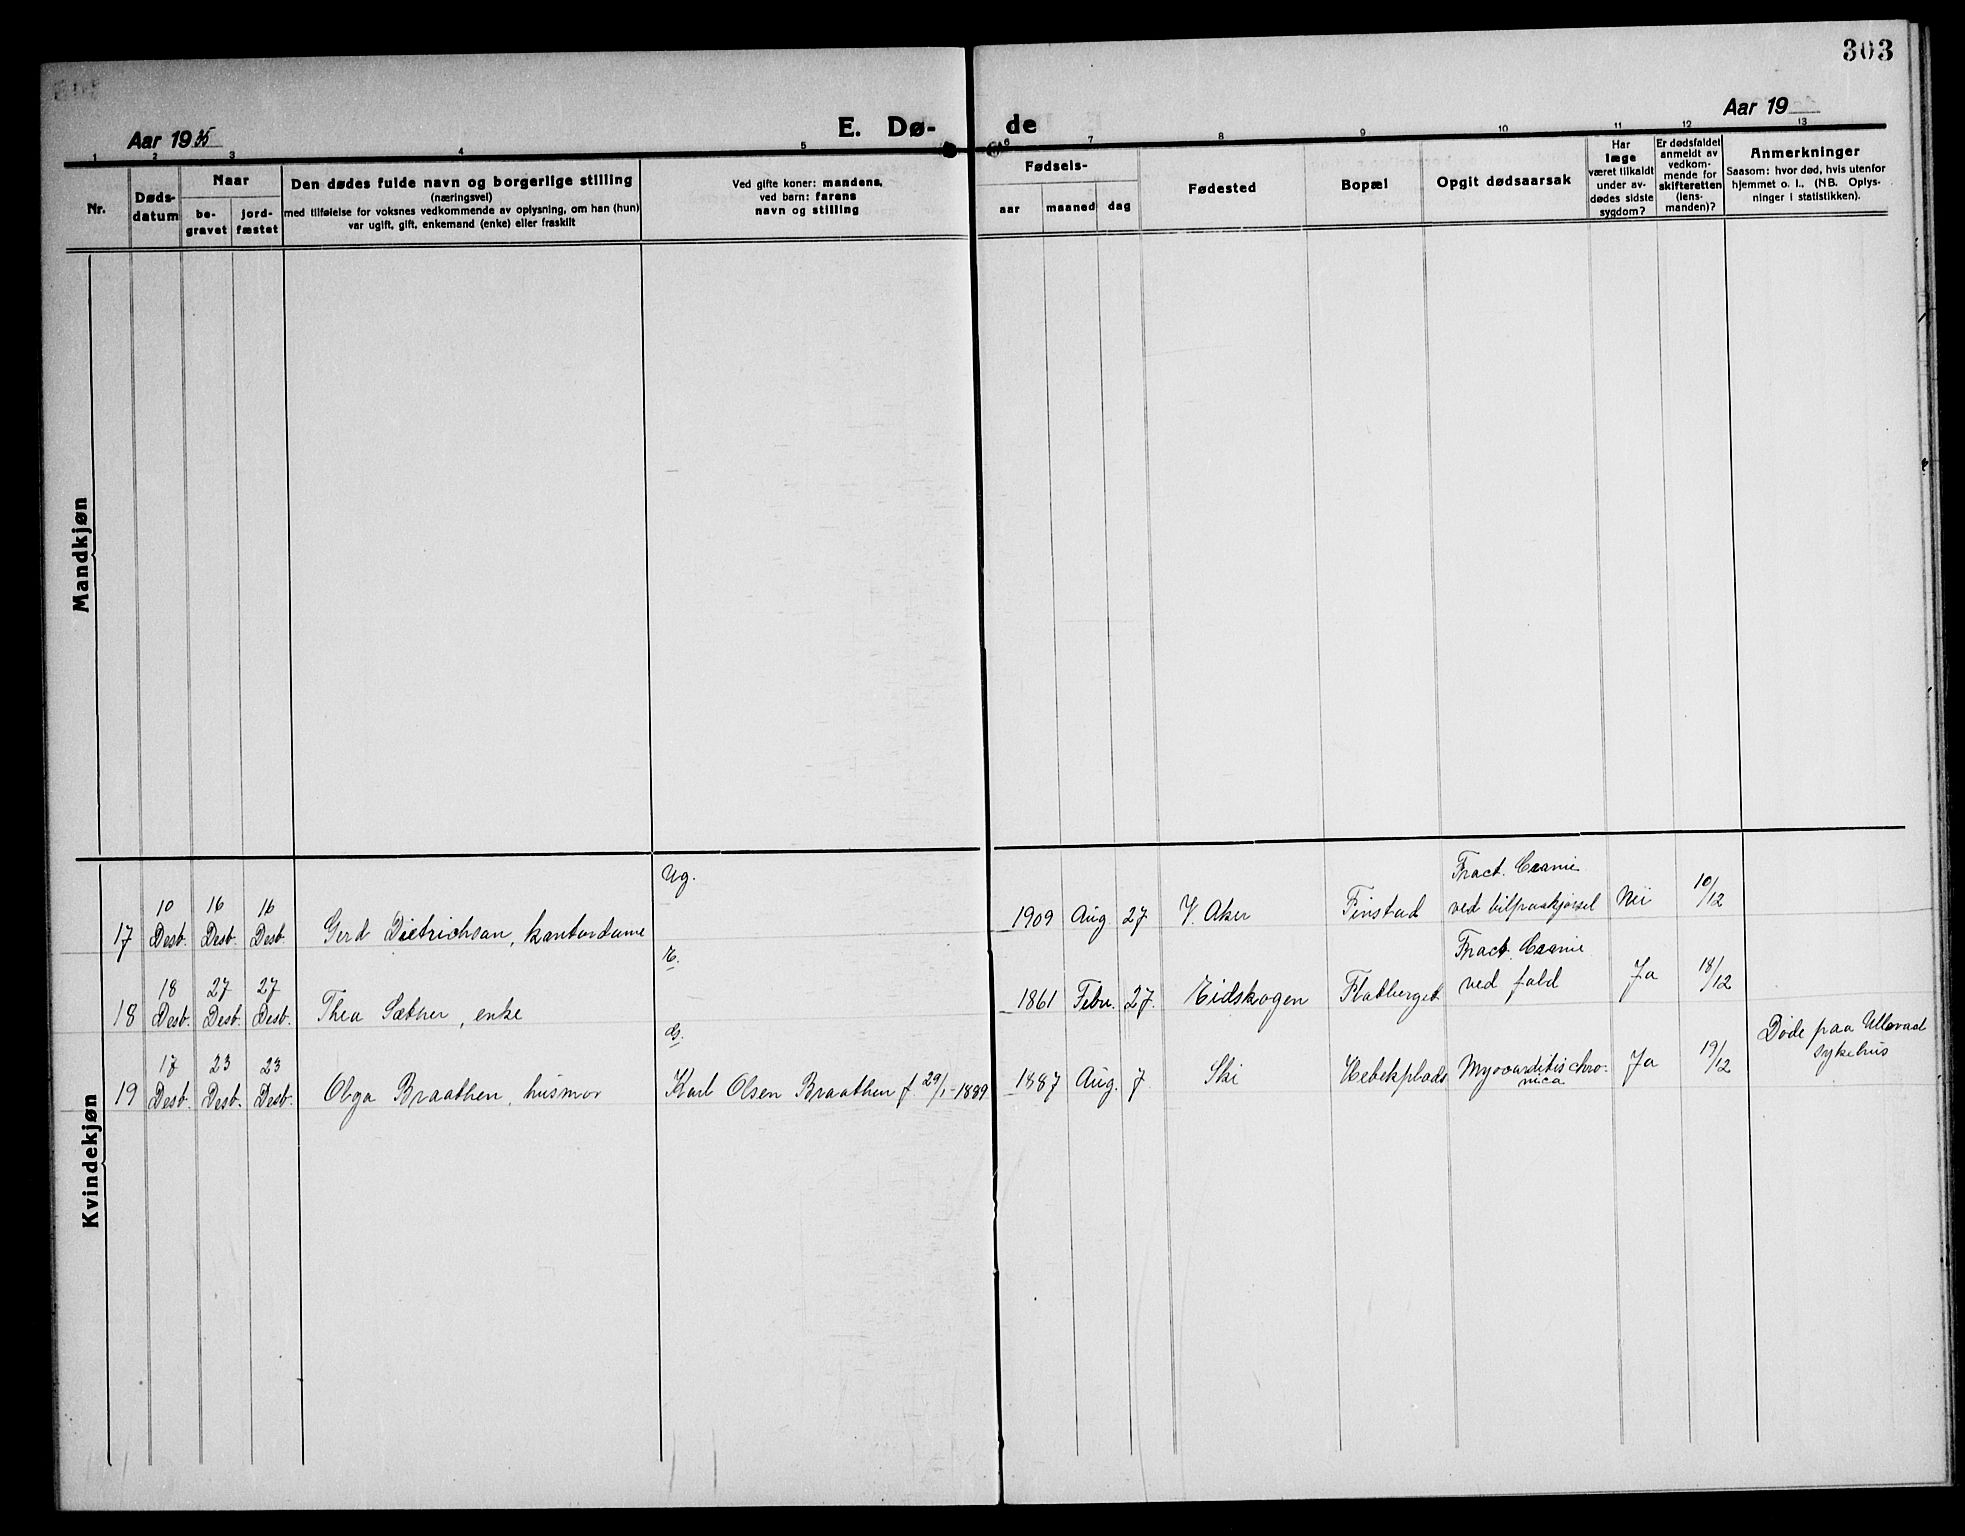 303
Aar 1935
E. Dø-
de
Aar 19
1 2 3 4 5 6 7 8 9 10 11 12 13
Nr.
Døds-
datum
Naar
be-
gravet
jord-
fæstet
Den dødes fulde navn og borgerlige stilling
(næringsvei)
med tilføielse for voksnes vedkommende av oplysning, om han (hun)
var ugift, gift, enkemand (enke) eller fraskilt
Ved gifte koner: mandens,
ved barn: farens
navn og stilling
Fødsels-
aar maaned dag
Fødested
Bopæl
Opgit dødsaarsak
Har
læge
været tilkaldt
under av-
dødes sidste
sygdom?
Er dødsfaldet
anmeldt av
vedkom-
mende for
skifteretten
(lens-
manden)?
Anmerkninger
Saasom: hvor død, hvis utenfor
hjemmet o. l., (NB. Oplys-
ninger i statistikken).
Mandkjøn
Kvindekjøn
Ug.
17 10 Desb. 16 Desb. 16 Desb. Gerd Dietrichson, kontordame 1909 Aug 27 V. Aker Finstad Fract. Cranie
ved bilpaakjørsel Nei 10/12
E.
18 18 Desb. 27 Desb. 27 Desb. Thea Sæther, enke 1861 Febr. 27. Eidskogen Flatberget Fract. Cranie
ved fald Ja 18/12
G.
19 17 Desb. 23 Desb. 23 Desb. Olga Braathen, husmor Karl Olsen Braathen f. 29/1-1889 1887 Aug. 7. Ski Hebekplads Myocarditis chro-
nica Ja 19/12 Døde paa Ullevaal
sykehus